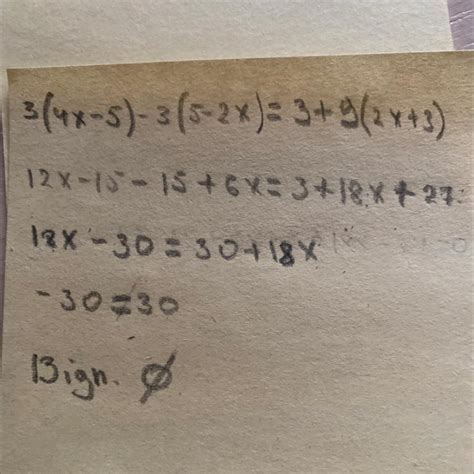 3(4x-5)-3(5-2x)=3+9(2x+3)
12x-15-15+6x=3+18x+27
18x-30=30+18x
-30≠30
Відп. ∅